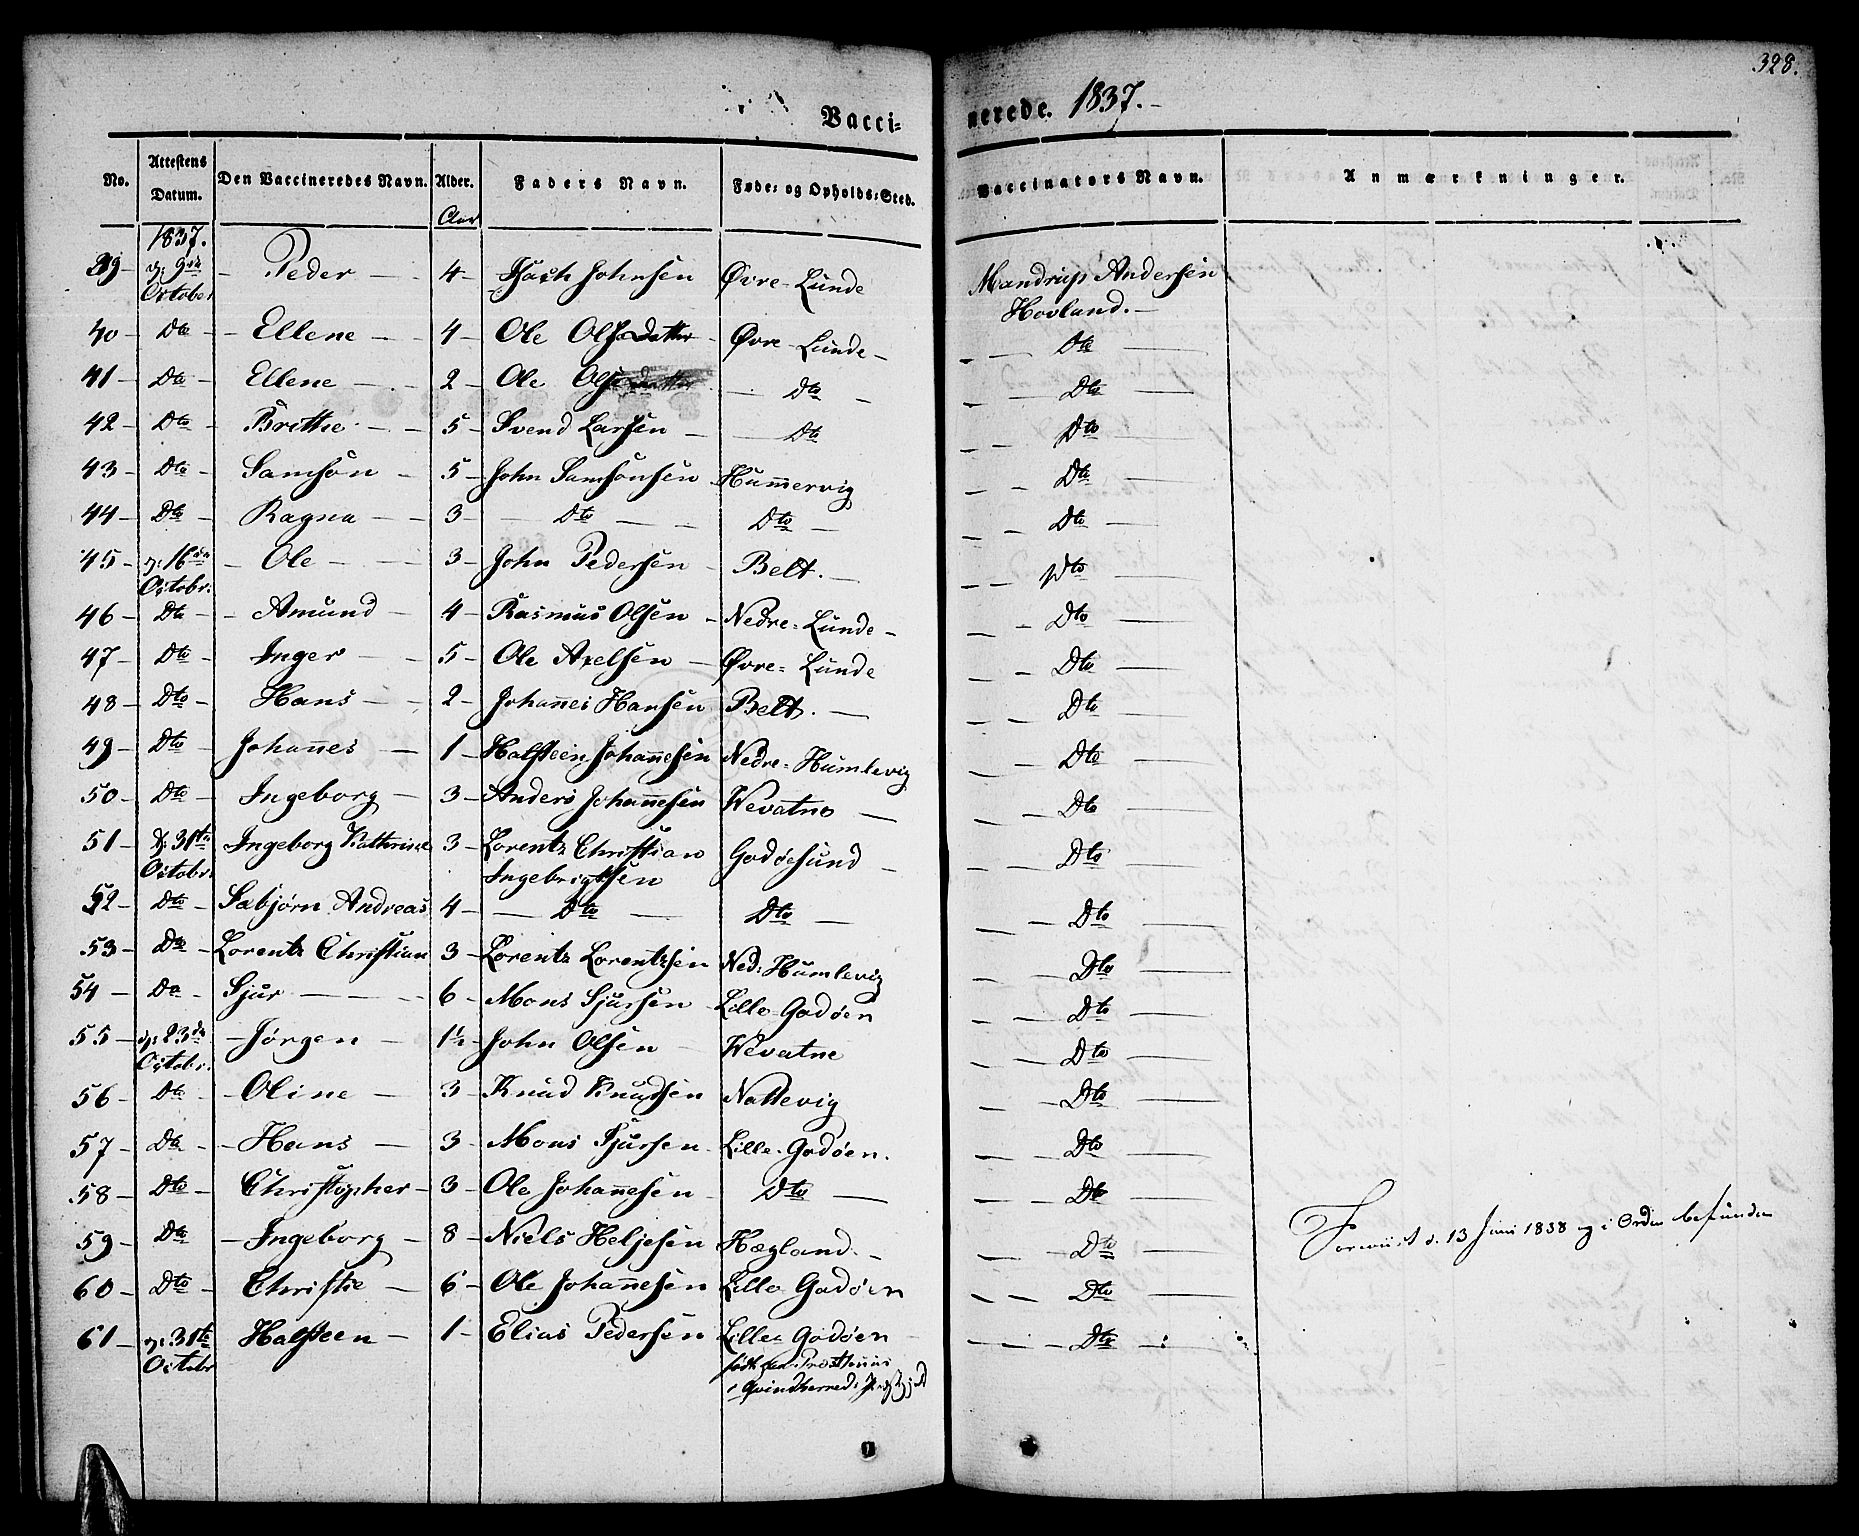 328.
Vacci= nerede. 1837.-
No. Attestens Datum. Den Vaccineredes Navn. Alder. Faders Navn. Føde- og Opholds-Sted. Vaccinators Navn. Anmærkninger.
1837. Aar
39- d: 9de October - Peder - 4- Johnsen Øvre-Lunde Mandrup Andersen Hovland.-
40- Dto - Ellene - 4- Ole Olsdatter Øvre-Lunde - Dto
41- Dto - Ellene - 2- Ole - Dto - Dto
42- Dto - Brithe - 5- Svend Larsen - Dto - Dto
43- Dto - Samson - 5- John Samsonsen Hummervig - Dto
44- Dto - Ragna - 3- Dto - Dto - Dto
45- d: 16de Octobr. - Ole - 3- John Pedersen - Belt. - Dto
46- Dto - Amund - 4- Rasmus Olsen - Nedre-Lunde - Dto
47- Dto - Inger - 5- Ole Axelsen - Øvre-Lunde - Dto
48- Dto - Hans - 2- Johannes Hansen Belt. - Dto
49- Dto - Johannes - 1- Halsteen Johannesen Nedre-Humlevig - Dto
50- Dto - Ingeborg - 3- Anders Johannesen Wevatne - Dto
51- d: 31te Octobr. Ingeborg Kathrine 3- Lorentz Christian Ingebrigtsen Godøesund - Dto
52- Dto - Sæbjørn Andreas 4- Dto - Dto - Dto
53- Dto - Lorentz Christian 3- Lorentz Lorentzsen Ned: Humlevig - Dto
54- Dto - Sjur - 6- Mons Sjursen - Lille Godøen - Dto
55- d: 23de Octobr. - Jørgen - 1½ John Olsen Wevatne - Dto
56- Dto - Oline - 3- Knud Knudsen Nottevig - Dto
57- Dto - Hans - 3- Mons Sjursen - Lille-Godøen. - Dto
58- Dto - Christopher - 3- Ole Johannesen - Dto - Dto
59- Dto - Ingeborg - 8- Niels Heljesen Hægland. - Dto - Foreviist d. 13 Juni 1838 og i Orden befunden
60- Dto - Christie - 6- Ole Johannesen Lille Godøen - Dto
61- d: 31te Octobr Halsteen - 1- Elias Pedersen Lille Godøen - Dto
født
i Qvindherreds Præstegjeld